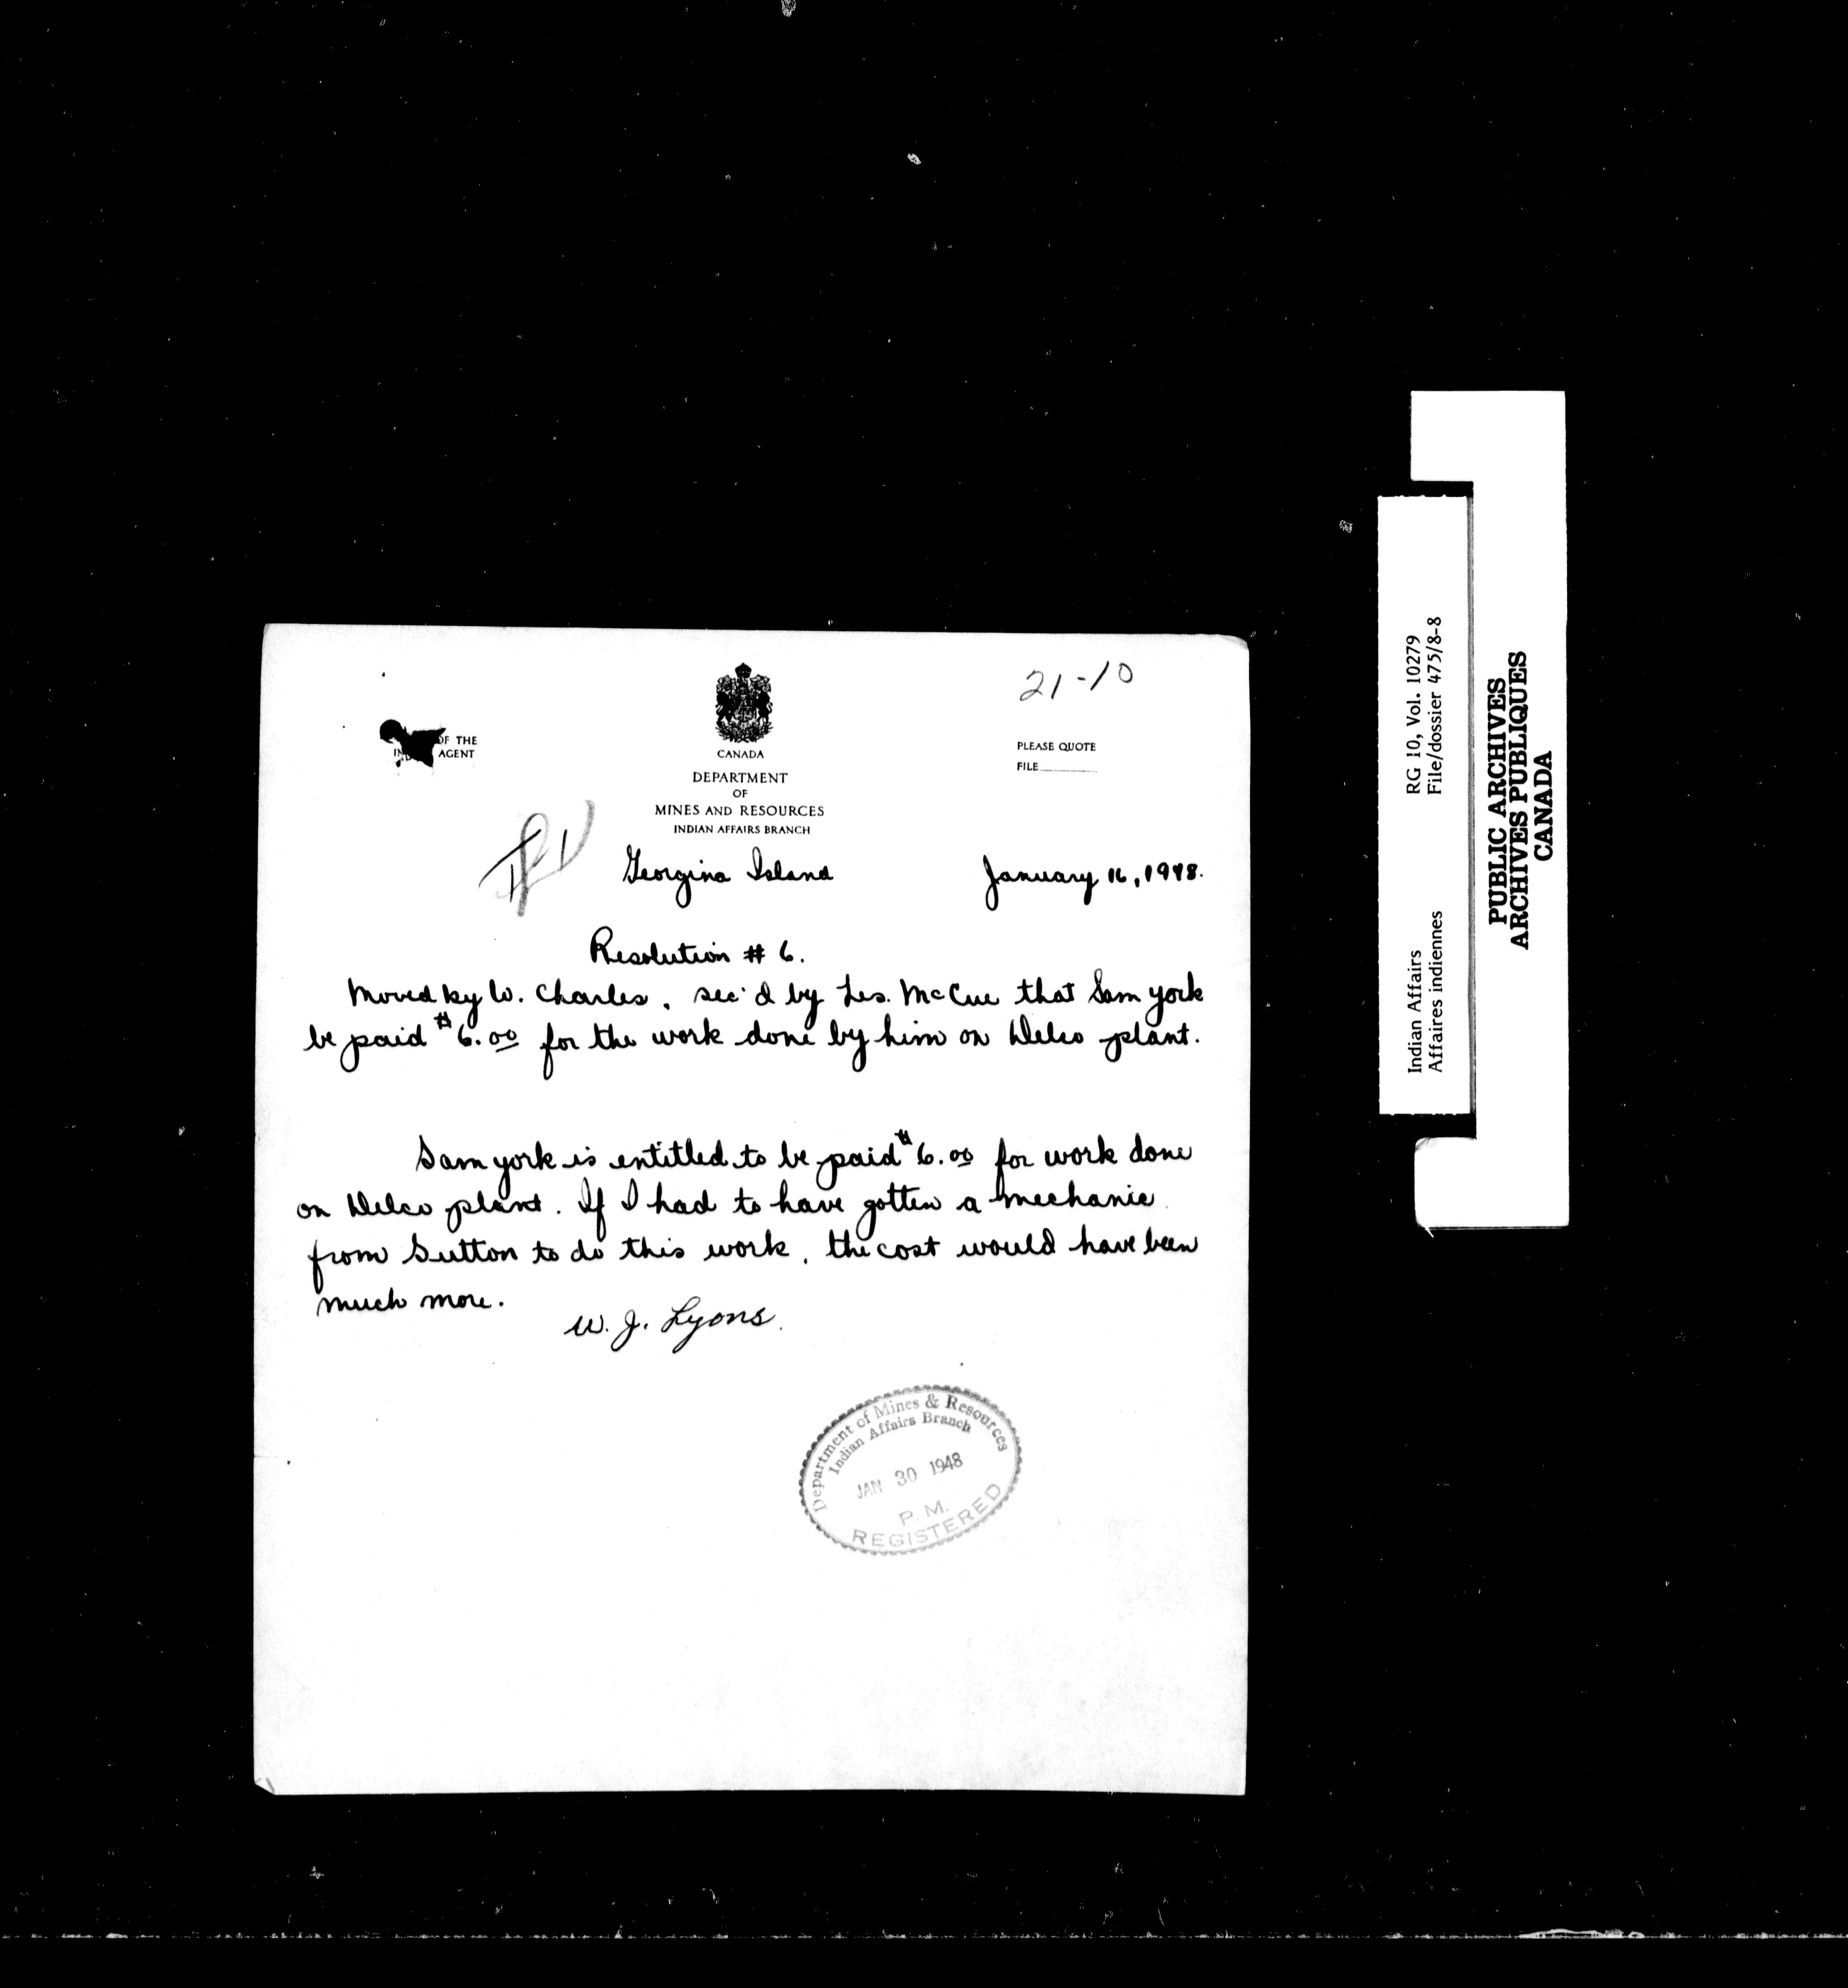 21-10
OF THE
AGENT
CANADA
PLEASE QUOTE
FILE
DEPARTMENT
OF
MINES AND RESOURCES
INDIAN AFFAIRS BRANCH
Georgina Island January 16, 1948.
Resolution # 6.
Moved by W. Charles, sec'd by Les. McCue that Sam York
be paid $6.00 for the work done by him on Delco plant.
Sam York is entitled to be paid $6.00 for work done
on Delco plant. If I had to have gotten a mechanic
from Sutton to do this work, the cost would have been
much more.
W. J. Lyons.
Department of Mines & Resources
Indian Affairs Branch
JAN 30 1948
P. M.
REGISTERED
Indian Affairs RG 10, Vol. 10279
Affaires indiennes File/dossier 475/8-8
PUBLIC ARCHIVES
ARCHIVES PUBLIQUES
CANADA